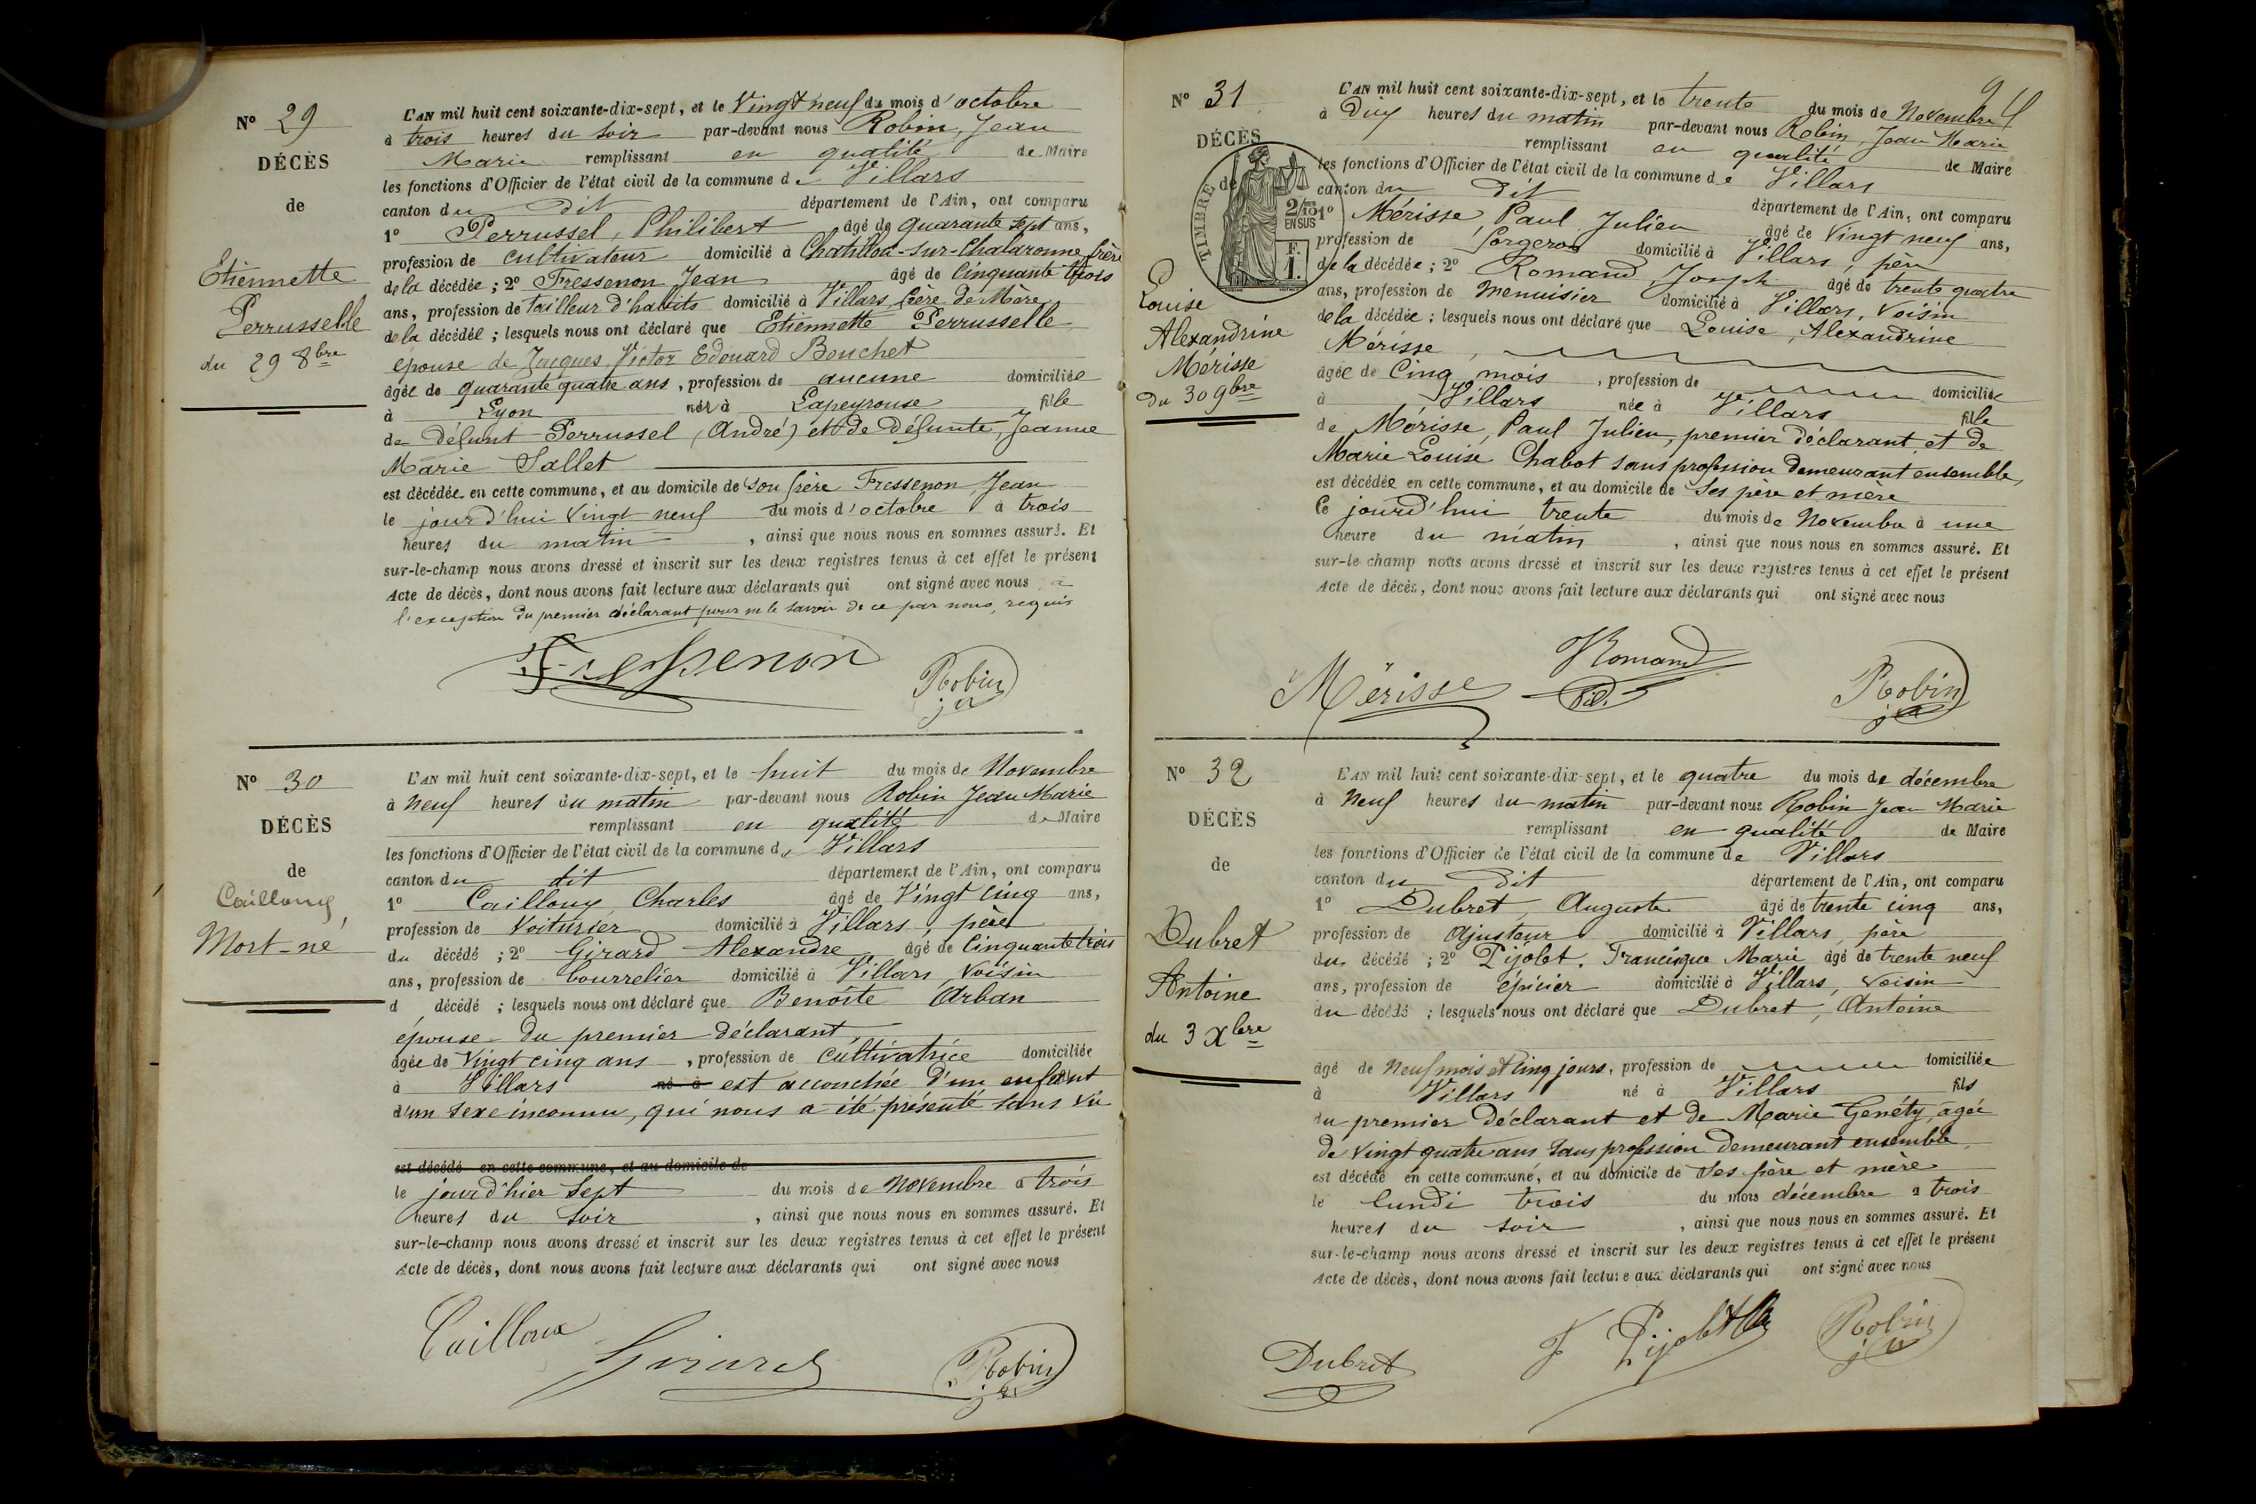 Nº 29
DÉCÈS
de
Etiennette
Perrusselle
du 29 8bre
L'AN mil huit cent soixante-dix-sept, et le Vingt neuf du mois d'octobre
à trois heures du soir par-devant nous Robin, Jean
Marie remplissant en qualité de Maire
les fonctions d'Officier de l'état civil de la commune de Villars
canton du dit département de l'Ain, ont comparu
1º Perrussel, Philibert âgé de quarante sept ans,
profession de cultivateur domicilié à Chatillon-sur-Chalaronne frère
de la décédée ; 2º Fressenon Jean âgé de cinquante trois
ans, profession de tailleur d'habits domicilié à Villars frère de Mère
de la décédée ; lesquels nous ont déclaré que Etiennette Perrusselle
épouse de Jacques Victor Edouard Bouchet
âgée de quarante quatre ans, profession de aucune domiciliée
à Lyon née à Lapeyrouse fille
de défunt Perrussel (André) et de défunte, Jeanne
Marie Sallet
est décédée en cette commune, et au domicile de son frère Fressenon Jean
le jourd'hui vingt neuf du mois d'octobre à trois
heures du matin, ainsi que nous nous en sommes assuré. Et
sur-le-champ nous avons dressé et inscrit sur les deux registres tenus à cet effet le présent
Acte de décès, dont nous avons fait lecture aux déclarants qui ont signé avec nous à
l'exception du premier déclarant pour ne le savoir de ce par nous requis
Fressenon
Robin
Nº 30
DÉCÈS
de
Caillouz
Mort-né
L'AN mil huit cent soixante-dix-sept, et le huit du mois de Novembre
à neuf heures du matin par-devant nous Robin Jean Marie
remplissant en qualité de Maire
les fonctions d'Officier de l'état civil de la commune de Villars
canton du dit département de l'Ain, ont comparu
1º Caillouz Charles âgé de Vingt cinq ans,
profession de Voiturier domicilié à Villars, père
du décédé ; 2º Girard Alexandre âgé de cinquante trois
ans, profession de bourrelier domicilié à Villars, voisin
d décédé ; lesquels nous ont déclaré que Benoîte Arban
épouse du premier déclarant,
âgée de Vingt cinq ans, profession de cultivatrice domiciliée
à Villars né à est accouchée d'un enfant
d'un sexe inconnu, qui nous a été présenté sans vie
est décédé en cette commune, et au domicile de
le jour d'hier sept du mois de Novembre à trois
heures du soir, ainsi que nous nous en sommes assuré. Et
sur-le-champ nous avons dressé et inscrit sur les deux registres tenus à cet effet le présent
Acte de décès, dont nous avons fait lecture aux déclarants qui ont signé avec nous
Cailloux
Girard
Robin
Nº 31
DÉCÈS
de
TIMBRE
2/10
EN SUS
F.
1.
Louise
Alexandrine
Mérisse
Du 30 9bre
L'AN mil huit cent soixante-dix-sept, et le trente du mois de Novembre
à Dix heures du matin par-devant nous Robin, Jean Marie
remplissant en qualité de Maire
les fonctions d'Officier de l'état civil de la commune de Villars
canton du dit département de l'Ain, ont comparu
1º Mérisse, Paul Julien âgé de Vingt neuf ans,
profession de forgeron domicilié à Villars, père
de la décédée ; 2º Romand Joseph âgé de trente quatre
ans, profession de menuisier domicilié à Villars, voisin
de la décédée ; lesquels nous ont déclaré que Louise, Alexandrine
Mérisse,
âgée de Cinq mois, profession de domiciliée
à Villars née à Villars fille
de Mérisse, Paul Julien, premier déclarant, et de
Marie Louise Chabot sans profession demeurant ensemble,
est décédée en cette commune, et au domicile de ses père et mère
le jourd'hui trente du mois de Novembre à une
heure du matin, ainsi que nous nous en sommes assuré. Et
sur-le-champ nous avons dressé et inscrit sur les deux registres tenus à cet effet le présent
Acte de décès, dont nous avons fait lecture aux déclarants qui ont signé avec nous
Mérisse
Romand
Robin
Nº 32
DÉCÈS
de
Dubret
Antoine
du 3 Xbre
L'AN mil huit cent soixante-dix-sept, et le quatre du mois de décembre
à Neuf heures du matin par-devant nous Robin Jean Marie
remplissant en qualité de Maire
les fonctions d'Officier de l'état civil de la commune de Villars
canton du dit département de l'Ain, ont comparu
1º Dubret, Auguste âgé de trente cinq ans,
profession de Ajusteur domicilié à Villars, père
du décédé ; 2º Pijolet. Francisque Marie âgé de trente neuf
ans, profession de épicier domicilié à Villars, voisin
du décédé ; lesquels nous ont déclaré que Dubret, Antoine
âgé de Neuf mois et cinq jours, profession de domiciliée
à Villars né à Villars fils
du premier déclarant et de Marie Genéty, âgée
de vingt quatre ans sans profession demeurant ensemble,
est décédé en cette commune, et au domicile de ses père et mère
le lundi trois du mois décembre à trois
heures du soir, ainsi que nous nous en sommes assuré. Et
sur-le-champ nous avons dressé et inscrit sur les deux registres tenus à cet effet le présent
Acte de décès, dont nous avons fait lecture aux déclarants qui ont signé avec nous
Dubret
F Pijolet
Robin